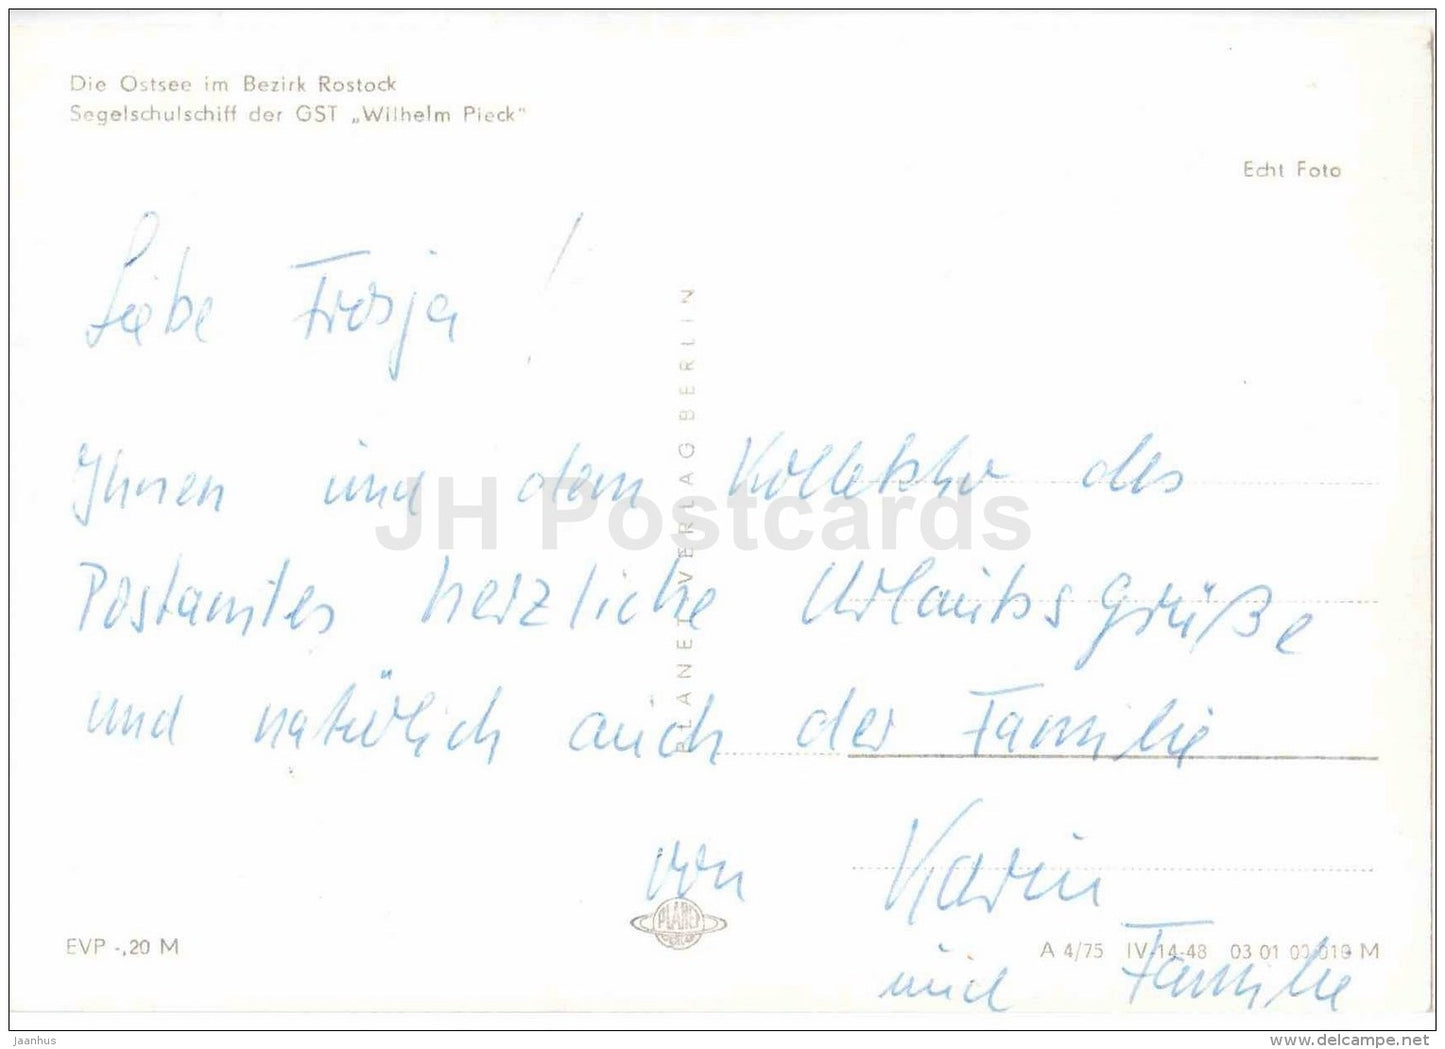 Die Ostsee im Bezirk Rostock
Segelschulschiff der GST „Wilhelm Pieck"
Echt Foto
Liebe Frosja!
Ihnen und dem Kollektiv des
Postamtes herzliche Urlaubsgrüße
und natürlich auch der Familie
von Karin
und Familie
PLANET VERLAG BERLIN
JH Postcards
PLANET
EVP -,20 M
A 4/75 IV-14-48 03 01 00 010 M
jaanhus
www.delcampe.net